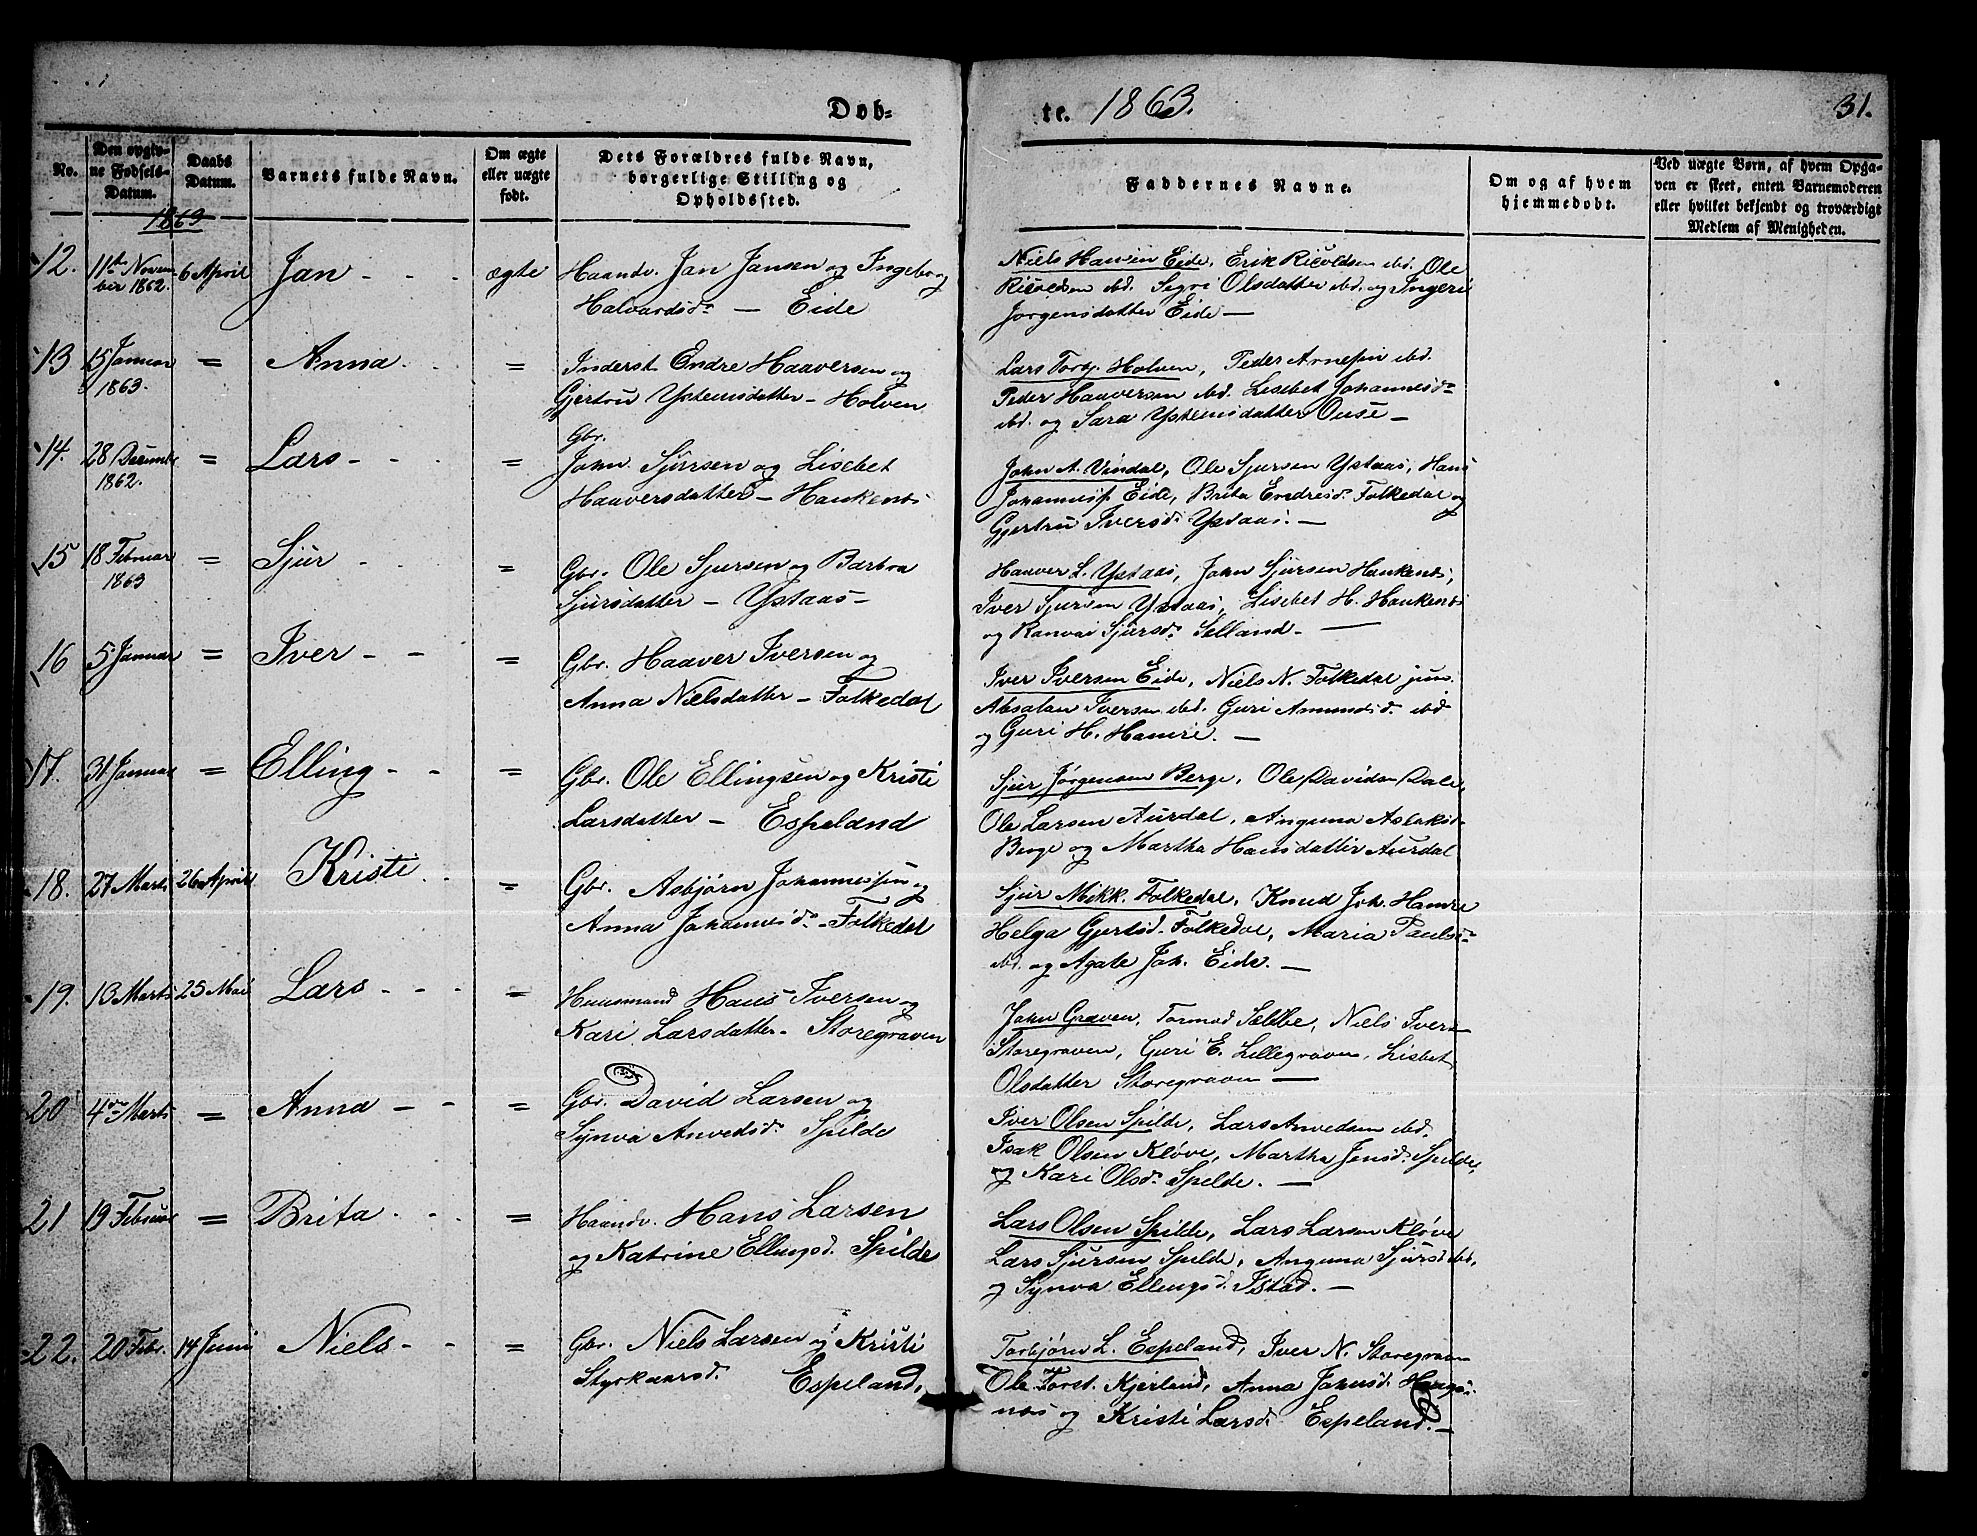 Døb-
te. 1863.
31.
No.
Den opgiv-
ne Fødsels-
Datum.
Daabs
Datum.
Barnets fulde Navn.
Om ægte
eller uægte
født.
Dets Forældres fulde Navn,
borgerlige Stilling og
Opholdssted.
Faddernes Navne.
Om og af hvem
hjemmedøbt.
Ved uægte Børn, af hvem Opga-
ven er skeet, enten Barnemoderen
eller hvilket bekjendt og troværdigt
Medlem af Menigheden.
1863
12.
11te Novem
ber 1862.
6 April
Jan - - -
ægte
Haandv. Jan Jansen og Ingebor
Halvardsdr — Eide
Niels Eide, Erik Ricoldsen ibd. Ole
Ricoldsen ibd. Sigri Olsdatter ibd. og Ingeri
Jørgensdatter Eide —
13
15 Januar
1863.
=
Anna - -
=
Inderst Endre Haaversen og
Gjertru Ystensdatter - Holven
Lars Torbj. Holven, Peder Arnesen ibd.
Peder Haaversen ibd. Lisebet Johannesdr
ibd. og Sara Ystensdatter Ouse —
14.
28 Decembr
1862.
=
Lars - - -
=
Gbr.
John Sjursen og Lisebet
Haaversdatter - Haukenæs
John A. Vindal, Ole Sjursen Ystaas, Hans
Johannesse Eide, Brita Endresd. Folkedal og
Gjertru Iversd. Ystaas. —
15
18 Februar
1863
=
Sjur - -
=
Gbr. Ole Sjursen og Barbra
Sjursdatter - Ystaas -
Haaver L. Ystaas, John Sjursen Haukenæs,
Iver Sjursen Ystaas, Lisebet H. Haukenæs
og Ranvei Sjursd. Selland. —
16
5 Januar
=
Iver - -
=
Gbr. Haaver Iversen og
Anna Nielsdatter - Folkedal
Iver Iversen Eide, Niels N. Folkedal jun.
Absalon Iversen ibd. Guri Amundsd. ibd
og Guri H. Hamre. —
17.
31 Januar
=
Elling - -
=
Gbr. Ole Ellingsen og Kristi
Larsdatter - Espeland
Sjur Jørgensen Berge, Ole Davidsen Dale,
Ole Larsen Aurdal, Anguna Aslaksd.
Berge og Martha Hansdatter Aurdal
18.
27 Marts
26 April
Kristi - -
=
Gbr. Asbjørn Johannessen og
Anna Johannesdr - Folkedal
Sjur Mikk. Folkedal, Knud Joh. Hamre
Helga Gjertsd. Folkedal, Maria Paulsd.
ibd. og Agate Joh. Eide. —
19.
13 Marts
25 Mai
Lars - - -
=
Huusmand Hans Iversen og
Kari Larsdatter - Storegraven
John Græven, Tormod Seltbe, Niels Ivers
Storegraven, Guri E. Lillegraven, Lisbet
Olsdatter Storegraven —
20
4de Marts
=
Anna - -
=
Gbr. David Larsen og
Synva Anvedsd. Spilde
Iver Olsen Spilde, Lars Anvedsen ibd.
Isak Olsen Kløve, Martha Jensd. Spilde,
og Kari Olsdr Spilde. —
21
19 Februar
=
Brita - - -
=
Haandv. Hans Larsen
og Katrine Ellingsd. Spilde
Lars Olsen Spilde, Lars Larsen Kløve
Lars Sjursen Spilde, Anguna Sjursd ibd,
og Synva Ellingsd. Istad. —
22.
20 Febr.
14 Juni
Niels - -
=
Gbr. Niels Larsen og Kristi
Styrkaarsd. Espeland,
Torbjørn L. Espeland, Iver N. Storegraven
Ole Torst. Kjerland, Anna Johnsd.
næs og Kristi Larsd. Espeland. —